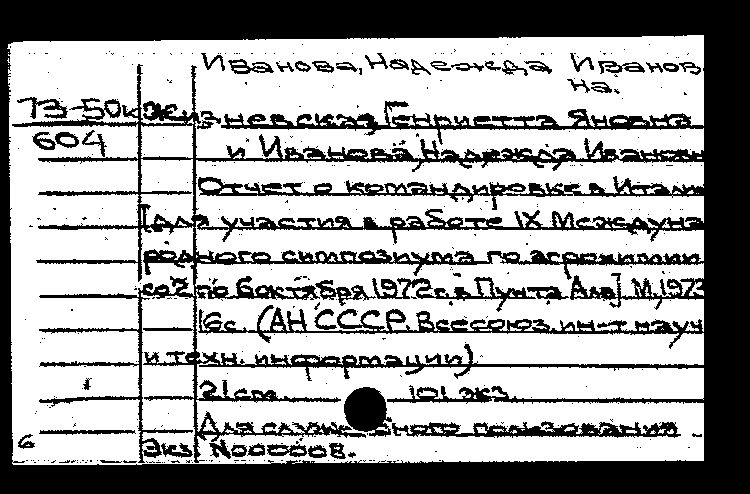 Иванова, Надежда Иванов
на.
73-50к Жизневская Генриетта Яновна
604 и Иванова Надежда Ивановн
Отчет о командировке в Итали
[для участия в работе IX Междуна
родного симпозиума по агрохимии
со 2 по 6 октября 1972 г. в Пунта Ала] М., 1973
16 с. (АН СССР. Всесоюз. ин-т науч
и техн. информации)
1 21 см. 101 экз.
Для служебного пользования
6 Экз. N000008.